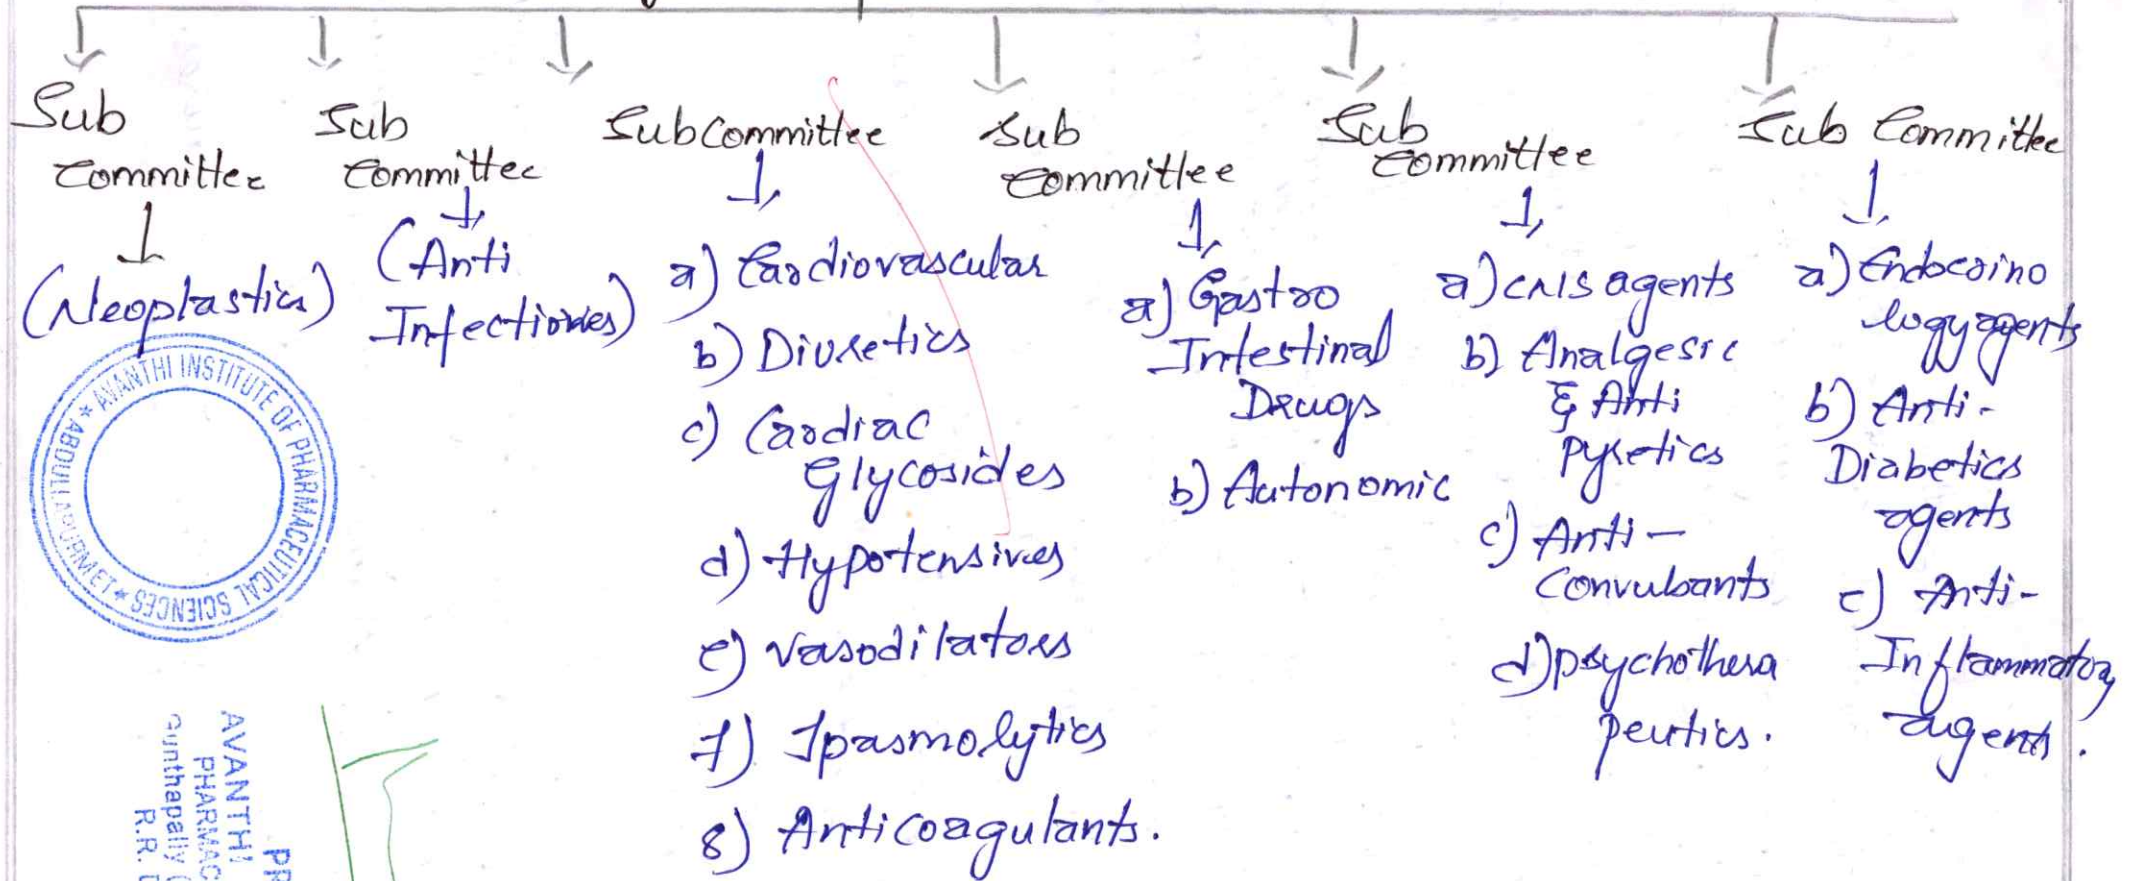 Sub
Committee
(Neoplastics)
Sub
Committee
(Anti
Infectiones)
Subcommittee
a) Cardiovascular
b) Diuretics
c) Cardiac
Glycosides
d) Hypotensives
e) Vasodilators
f) Spasmolytics
8) Anticoagulants.
Sub
Committee
a) Gastro
Intestinal
Drugs
b) Autonomic
Sub
Committee
a) CNS agents
b) Analgesic
& Anti
Pyretics
c) Anti-
Convulsants
d) psychothera
peutics.
Sub Committee
a) Endocrino
logy agents
b) Anti-
Diabetics
agents
c) Anti-
Inflammatory
agents.
* AVANTHI INSTITUTE OF PHARMACEUTICAL SCIENCES *
ABDULLAPURMET
PR
AVANTHI
PHARMAC
Gunthapally (
R.R.